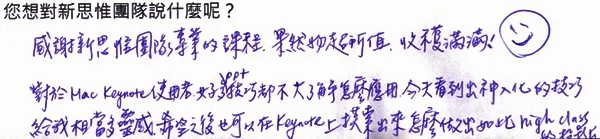 您想對新思惟團隊說什麼呢？
感謝新思惟團隊專業的課程，果然物超所值，收穫滿滿！
對於Mac Keynote使用者，好多ppt技巧都不太了解怎麼應用，今天看到出神入化的技巧
給我相當多靈感，希望之後也可以在Keynote上摸索出來怎麼做出如此high class
的投影片